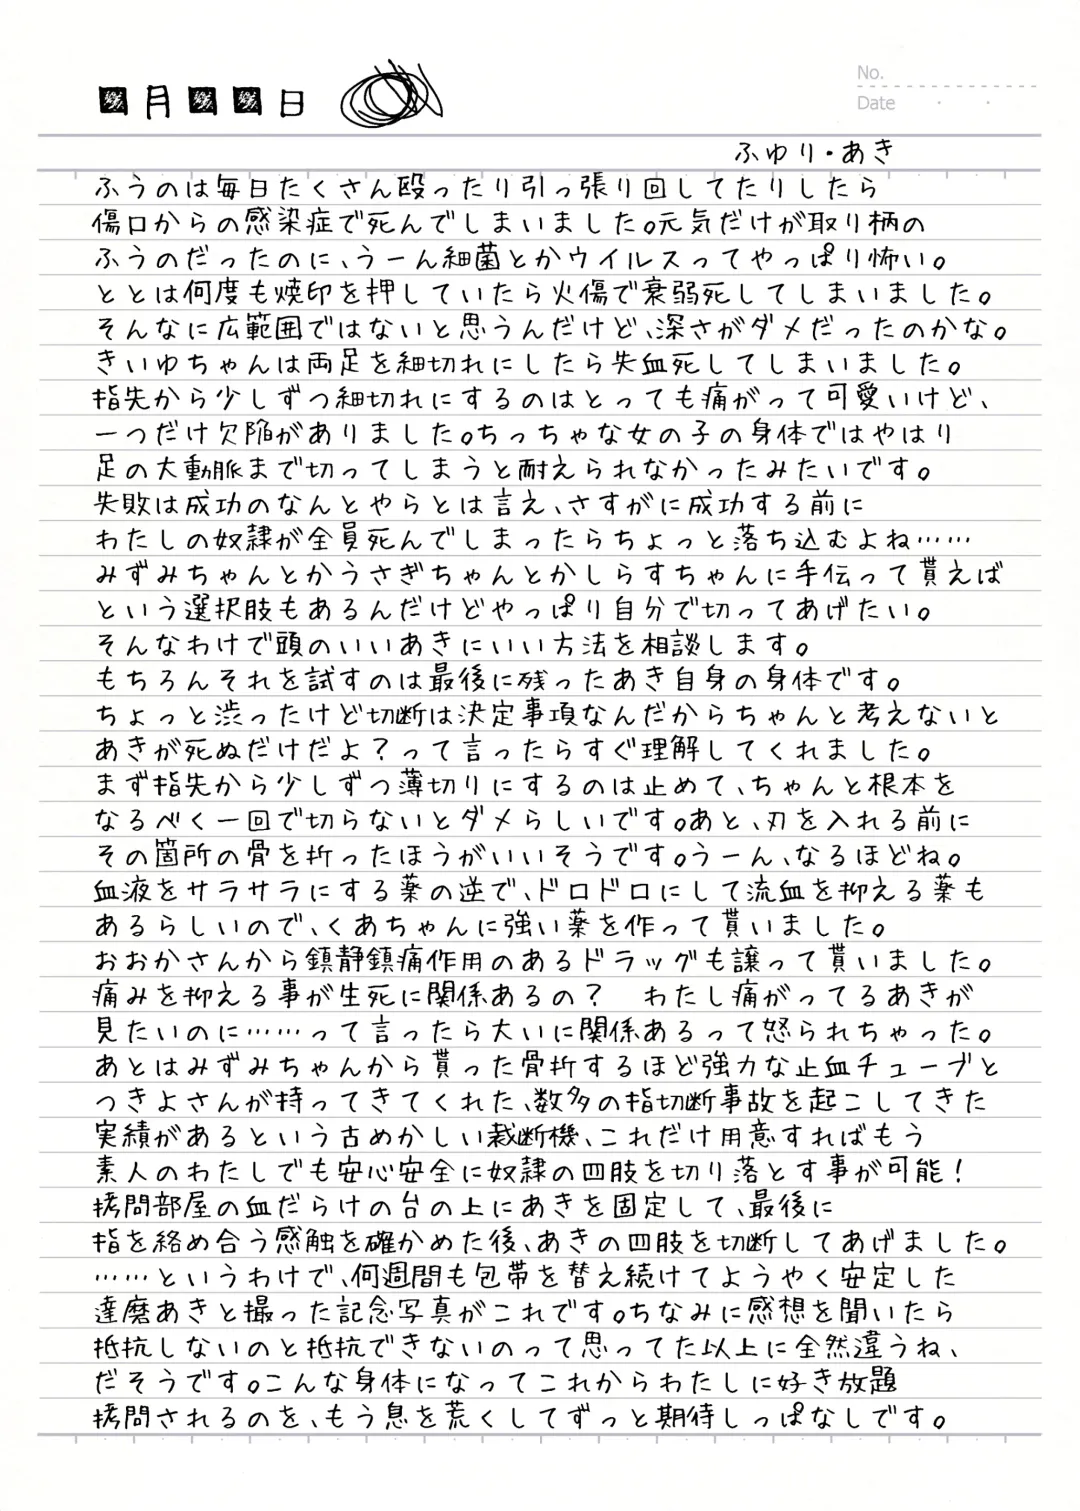 月 日
No.
Date
ふゆり・あき
ふうのは毎日たくさん殴ったり引っ張り回してたりしたら
傷口からの感染症で死んでしまいました。元気だけが取り柄の
ふうのだったのに、うーん細菌とかウイルスってやっぱり怖い。
ととは何度も焼印を押していたら火傷で衰弱死してしまいました。
そんなに広範囲ではないと思うんだけど、深さがダメだったのかな。
きいゆちゃんは両足を細切れにしたら失血死してしまいました。
指先から少しずつ細切れにするのはとっても痛がって可愛いけど、
一つだけ欠陥がありました。ちっちゃな女の子の身体ではやはり
足の大動脈まで切ってしまうと耐えられなかったみたいです。
失敗は成功のなんとやらとは言え、さすがに成功する前に
わたしの奴隷が全員死んでしまったらちょっと落ち込むよね……
みずみちゃんとかうさぎちゃんとかしらすちゃんに手伝って貰えば
という選択肢もあるんだけどやっぱり自分で切ってあげたい。
そんなわけで頭のいいあきにいい方法を相談します。
もちろんそれを試すのは最後に残ったあき自身の身体です。
ちょっと渋ったけど切断は決定事項なんだからちゃんと考えないと
あきが死ぬだけだよ？って言ったらすぐ理解してくれました。
まず指先から少しずつ薄切りにするのは止めて、ちゃんと根本を
なるべく一回で切らないとダメらしいです。あと、刃を入れる前に
その箇所の骨を折ったほうがいいそうです。うーん、なるほどね。
血液をサラサラにする薬の逆で、ドロドロにして流血を抑える薬も
あるらしいので、くあちゃんに強い薬を作って貰いました。
おおかさんから鎮静鎮痛作用のあるドラッグも譲って貰いました。
痛みを抑える事が生死に関係あるの？　わたし痛がってるあきが
見たいのに……って言ったら大いに関係あるって怒られちゃった。
あとはみずみちゃんから貰った骨折するほど強力な止血チューブと
つきよさんが持ってきてくれた、数多の指切断事故を起こしてきた
実績があるという古めかしい裁断機、これだけ用意すればもう
素人のわたしでも安心安全に奴隷の四肢を切り落とす事が可能！
拷問部屋の血だらけの台の上にあきを固定して、最後に
指を絡め合う感触を確かめた後、あきの四肢を切断してあげました。
……というわけで、何週間も包帯を替え続けてようやく安定した
達磨あきと撮った記念写真がこれです。ちなみに感想を聞いたら
抵抗しないのと抵抗できないのって思ってた以上に全然違うね、
だそうです。こんな身体になってこれからわたしに好き放題
拷問されるのを、もう息を荒くしてずっと期待しっぱなしです。